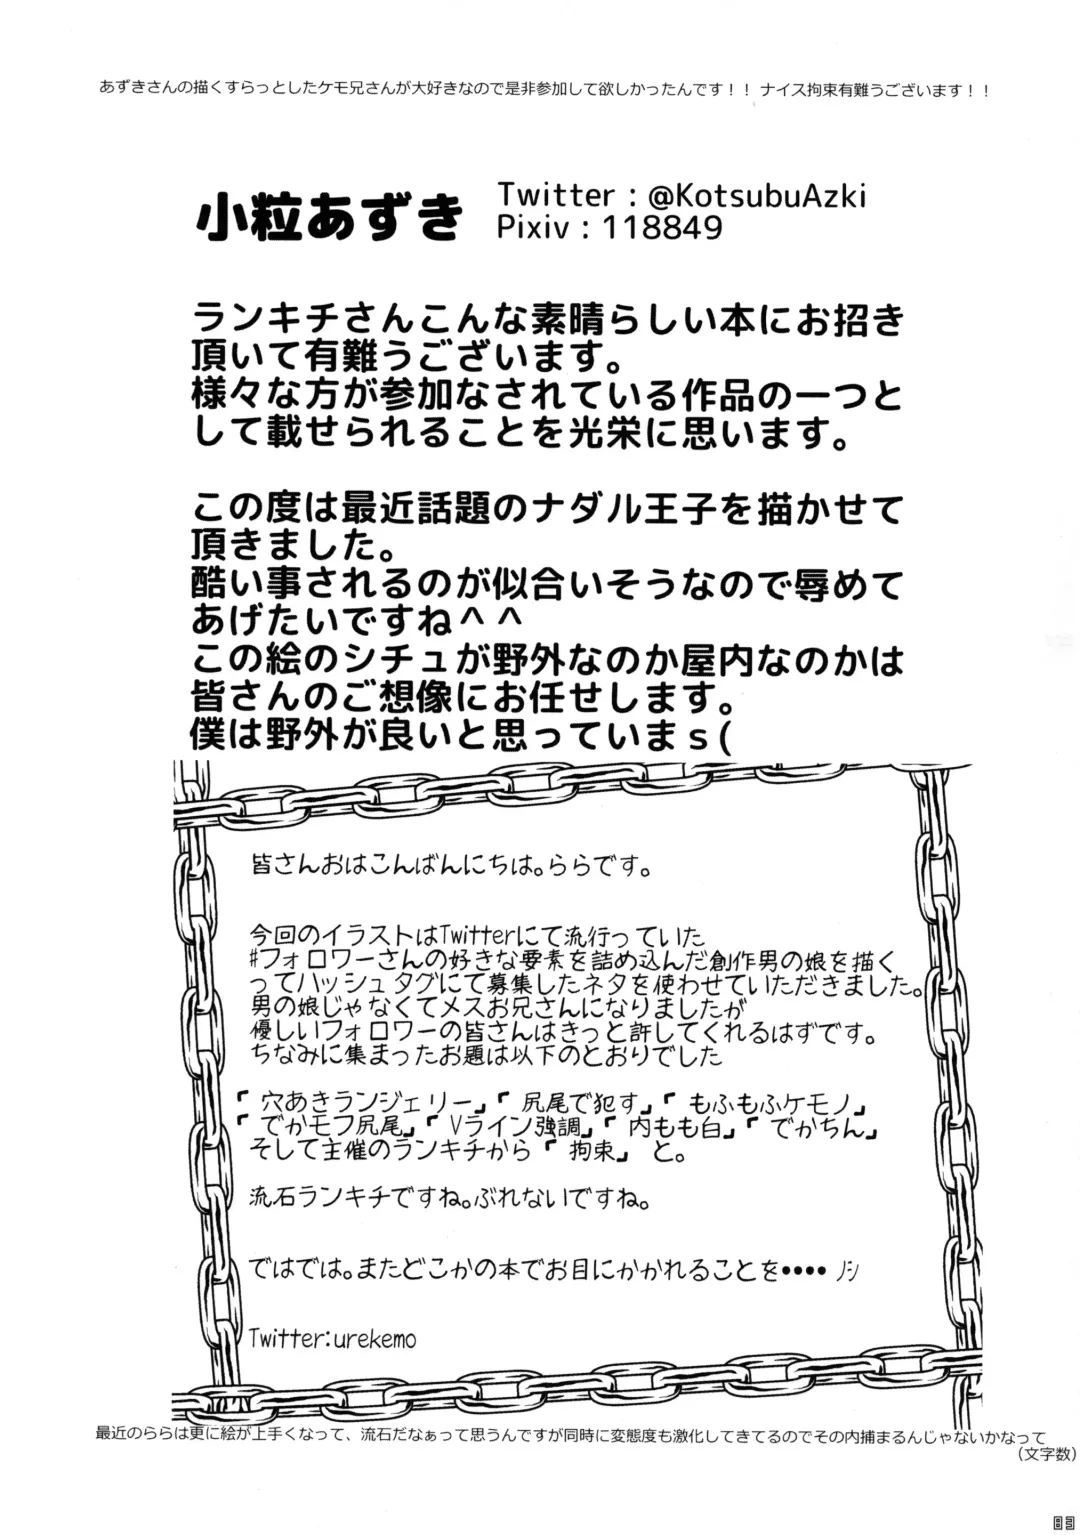 あずきさんの描くすらっとしたケモ兄さんが大好きなので是非参加して欲しかったんです！！ ナイス拘束有難うございます！！
小粒あずき
Twitter : @KotsubuAzki
Pixiv : 118849
ランキチさんこんな素晴らしい本にお招き
頂いて有難うございます。
様々な方が参加なされている作品の一つと
して載せられることを光栄に思います。
この度は最近話題のナダル王子を描かせて
頂きました。
酷い事されるのが似合いそうなので辱めて
あげたいですね＾＾
この絵のシチュが野外なのか屋内なのかは
皆さんのご想像にお任せします。
僕は野外が良いと思っていまｓ(
皆さんおはこんばんにちは。ららです。
今回のイラストはTwitterにて流行っていた
#フォロワーさんの好きな要素を詰め込んだ創作男の娘を描く
ってハッシュタグにて募集したネタを使わせていただきました。
男の娘じゃなくてメスお兄さんになりましたが
優しいフォロワーの皆さんはきっと許してくれるはずです。
ちなみに集まったお題は以下のとおりでした
「穴あきランジェリー」「尻尾で犯す」「もふもふケモノ」
「でかモフ尻尾」「Vライン強調」「内もも白」「でかちん」
そして主催のランキチから「拘束」と。
流石ランキチですね。ぶれないですね。
ではでは。またどこかの本でお目にかかれることを•••• ﾉｼ
Twitter:urekemo
最近のららは更に絵が上手くなって、流石だなぁって思うんですが同時に変態度も激化してきてるのでその内捕まるんじゃないかなって
（文字数）
83